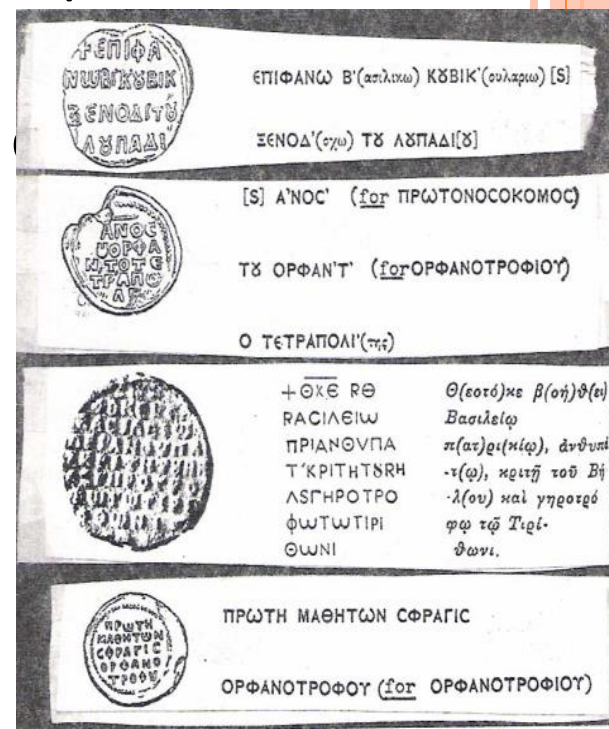 +ЄΠΙΦΑ
ΝѠΒΙΚȢΒΙΚ
ΞЄΝΟΔΙΤȢ
ΛȢΠΑΔΙ
ЄΠΙΦΑΝѠ Β'(ασιλικω) ΚȢΒΙΚ'(ουλαριω) [S]
ΞЄΝΟΔ'(οχω) ΤȢ ΛȢΠΑΔΙ[Ȣ]
ΑΝΟϹ
ΤΡΑΠѠ
[S] Α'ΝΟϹ' (for ΠΡѠΤΟΝΟϹΟΚΟΜΟϹ)
ΤȢ ΟΡΦΑΝ'Τ' (for ΟΡΦΑΝΟΤΡΟΦΙΟΥ)
Ο ΤЄΤΡΑΠΟΛΙ'(της)
+ΘΧЄ RΘ
RΑϹΙΛЄΙѠ
ΠΡΙΑΝΘVΠΑ
Τ'ΚΡΙΤΗΤȢRΗ
ΛSΓΗΡΟΤΡΟ
ΦѠΤѠΤΙΡΙ
ΘѠΝΙ
Θ(εοτό)κε β(οή)ϑ(ει)
Βασιλείῳ
π(ατ)ρι(κίῳ), ἀνϑυπά
-τ(ῳ), κριτῇ τοῦ Βή
-λ(ου) καὶ γηροτρό
φῳ τῷ Τιρί-
ϑωνι.
ΠΡѠΤΗ
ΜΑΘΗΤѠΝ
ϹΦΡΑΓΙϹ
ΟΡΦΑΝΟ
ΤΡΟΦȢ
ΠΡѠΤΗ ΜΑΘΗΤѠΝ ϹΦΡΑΓΙϹ
ΟΡΦΑΝΟΤΡΟΦΟΥ (for ΟΡΦΑΝΟΤΡΟΦΙΟΥ)